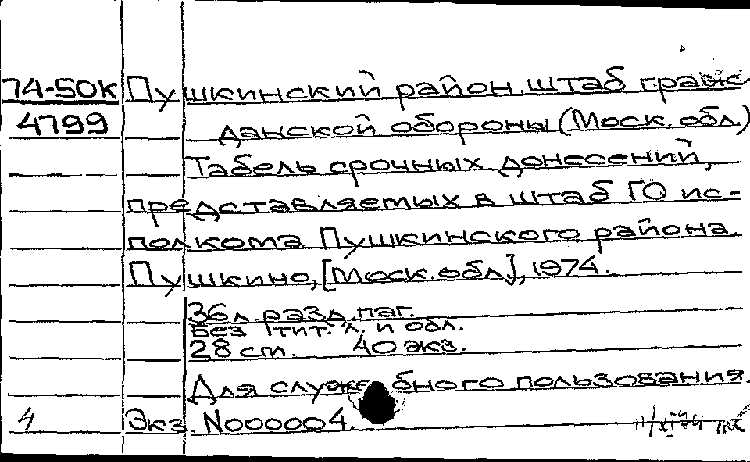 74-50к Пушкинский район. Штаб граж-
4799 данской обороны (Моск. обл.)
Табель срочных донесений,
представляемых в штаб ГО ис-
полкома Пушкинского района.
Пушкино, [Моск. обл.], 1974.
36 л. разд. паг.
Без тит. л. и обл.
28 см. 40 экз.
Для служебного пользования.
4 Экз. N000004.